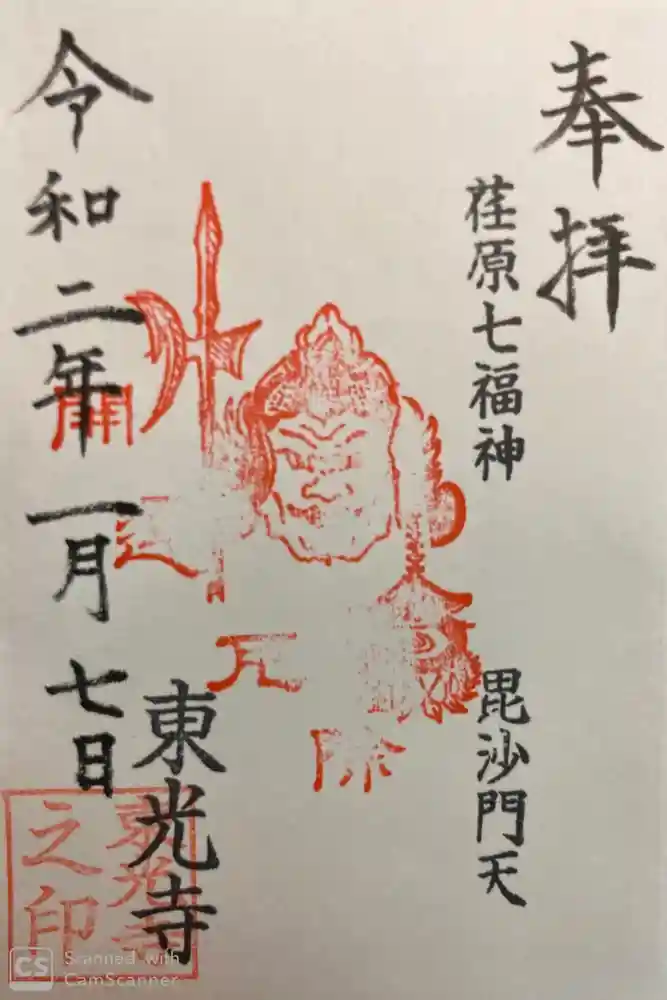 奉拝
荏原七福神
毘沙門天
令和二年一月七日
東光寺
東光寺
之印
開
運
厄
除
CS
Scanned with
CamScanner